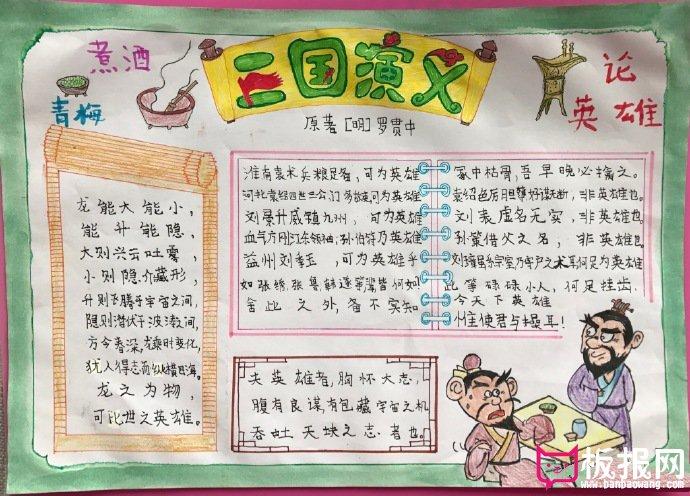 三国演义
原著[明]罗贯中
煮酒
青梅
论
英雄
龙能大能小,
能升能隐,
大则兴云吐雾,
小则隐介藏形,
升则飞腾于宇宙之间,
隐则潜伏于波涛之间,
方今春深,龙乘时变化,
犹人得志而纵横四海。
龙之为物,
可比世之英雄。
淮南袁术,兵粮足备,可为英雄
河北袁绍四世三公,门多故吏可为英雄
刘景升威镇九州,可为英雄
血气方刚江东领袖,孙伯符乃英雄
益州刘季玉,可为英雄乎
如张绣,张鲁,韩遂等辈皆何如
舍此之外,备不实知
冢中枯骨,吾早晚必擒之。
袁绍色厉胆薄好谋无断,非英雄也。
刘表虚名无实,非英雄也
孙策借父之名,非英雄也
刘璋虽系宗室乃守户之犬耳何足为英雄
此等碌碌小人,何足挂齿
今天下英雄
惟使君与操耳!
夫英雄者,胸怀大志,
腹有良谋,有包藏宇宙之机
吞吐天地之志者也。
板报网
www.banbaowang.com